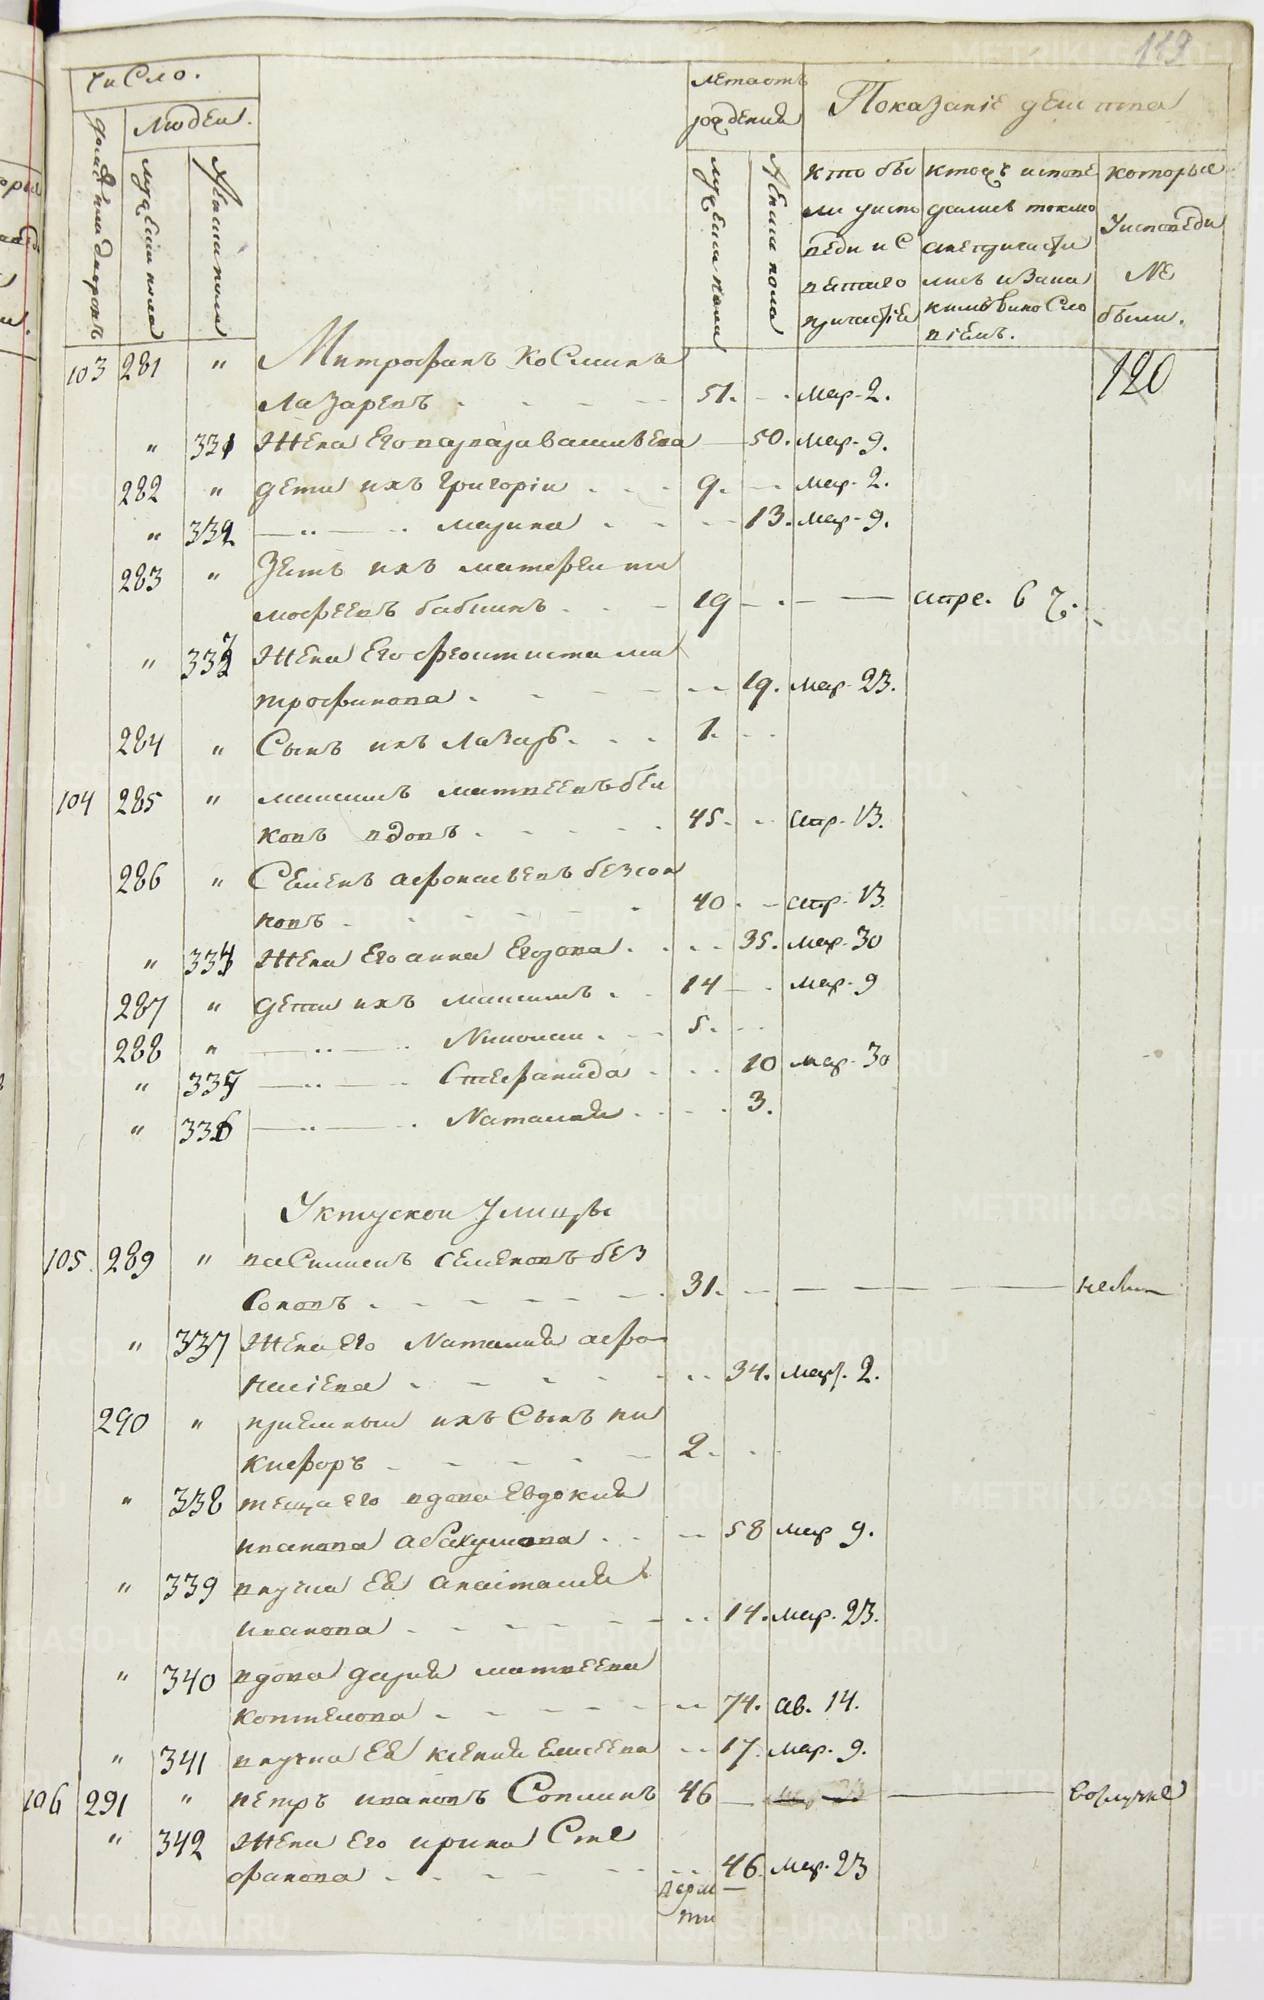 119
Число.
Людей.
домовъ или дворовъ
мужеска пола
женска пола
лета отъ
рождения
мужеска пола
женска пола
Показаніе действа
кто бы
ли у испо
веди и с
вятаго
причастіи
кто ж испове
дался токмо
а не причасти
лись и за ка
кимъ вино сло
віемъ.
которые
у исповеди
не
были.
120
103 281 " Митрофанъ Косминъ
Лазаревъ 51. мар. 2.
" 331 жена его варвара васильева 50. мар. 9.
282 " дети ихъ григорій 9. мар. 2.
" 332 марина 13. мар. 9.
283 " Зять ихъ матфей ти
мофеевъ бабинъ 19 апре. 6 ч.
" 333 жена его феоктиста ми
трофанова 19. мар. 23.
284 " Сынъ ихъ лазарь 1.
104 285 " максимъ матвеевъ бы
ковъ вдовъ 45. апр. 13.
286 " Семенъ афонасьевъ безсо
новъ 40 апр. 13.
" 334 жена его анна егорова 35. мар. 30
287 " дети ихъ максимъ 14 мар. 9
288 " Николай 5.
" 335 Стефанида 10 мар. 30
" 336 Наталия 3.
Уктуской Улицы
105. 289 " васились семеновъ без
соновъ 31. небы
" 337 жена его Наталия афо
насіева 34. мар. 2.
290 " приемный ихъ сынъ ни
кифоръ 2.
" 338 теща его вдова Евдокия
иванова абакумова 58 мар 9.
" 339 внучка ея анастасия
иванова 14. мар. 23.
" 340 вдова дария матвеева
коптелова 74. ав. 14.
" 341 внучка ея ксения елисеева 17. мар. 9.
106 291 " петръ ивановъ Сопминъ 46 вотлучке
" 342 жена его ирина Сте
фанова 46. мар. 23